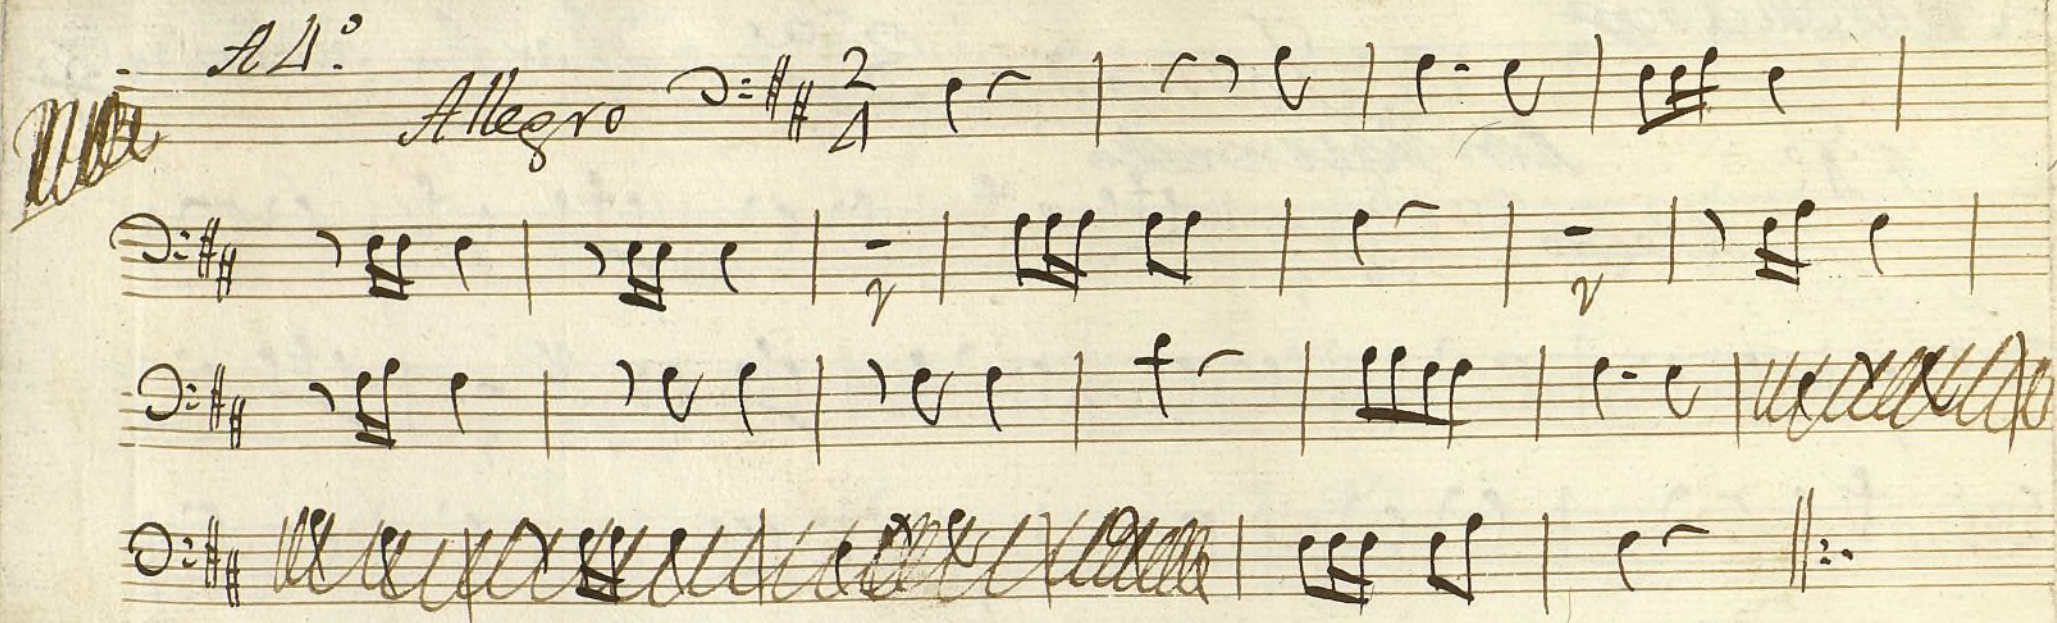 A 4.º
Allegro 2/4